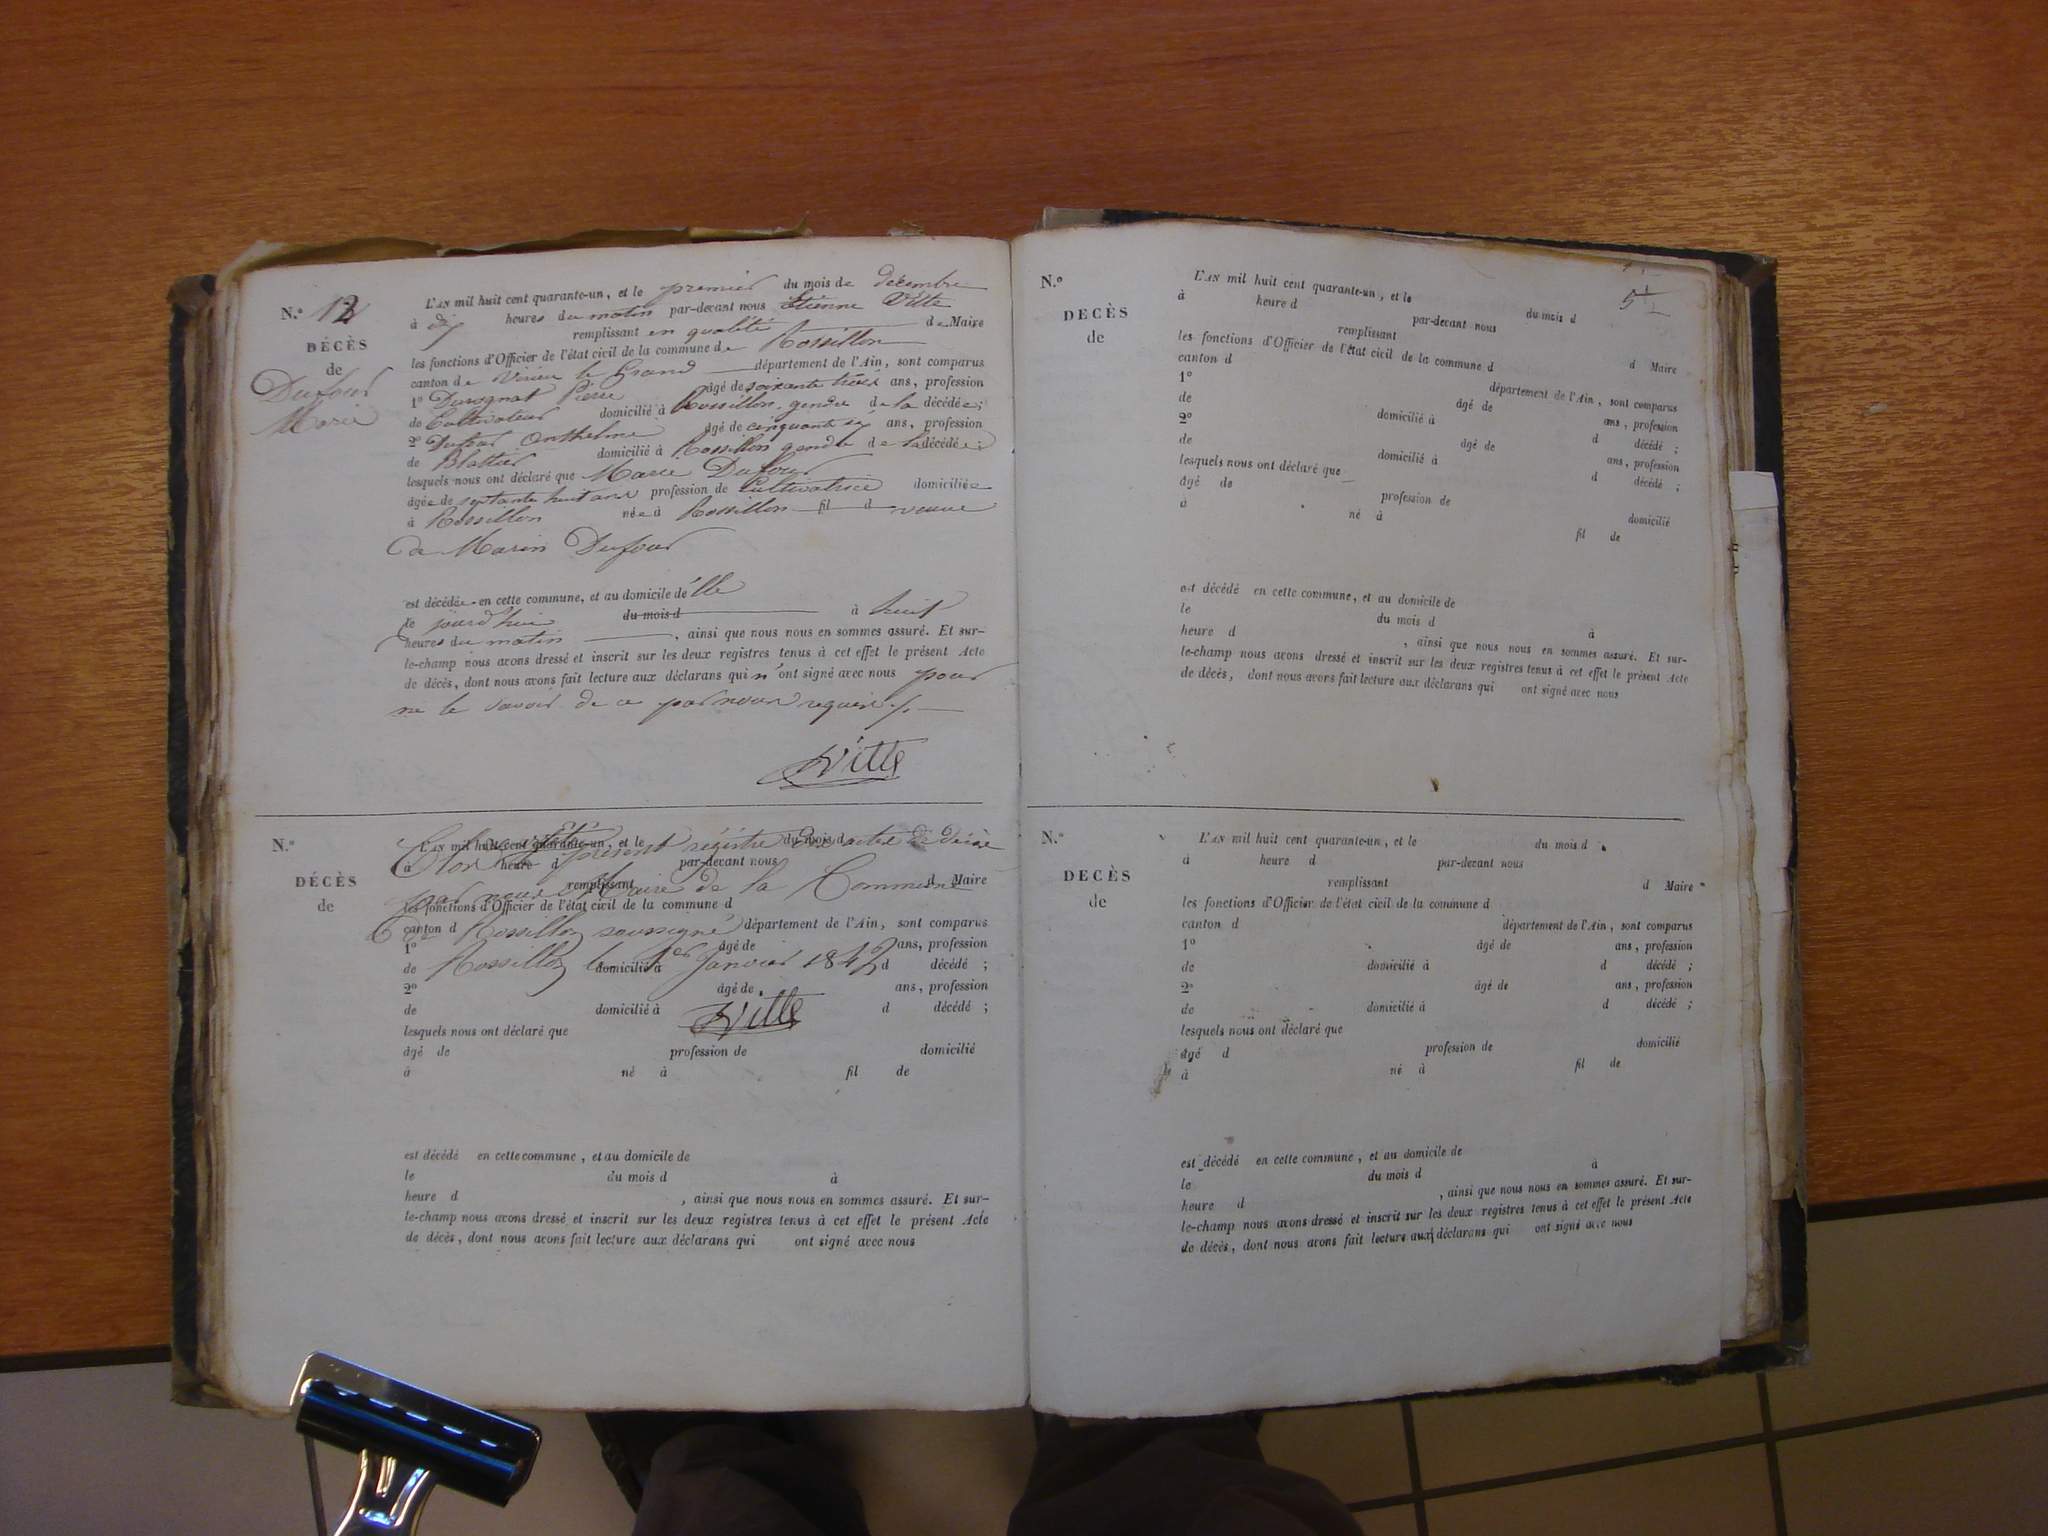 N.° 12
DÉCÈS
de
Dufour
Marie
L'AN mil huit cent quarante-un, et le premier du mois de décembre
à dix heures du matin par-devant nous Etienne Vitte
remplissant en qualité de Maire
les fonctions d'Officier de l'état civil de la commune de Rossillon
canton de Virieu le Grand département de l'Ain, sont comparus
1° Pierre âgé de soixante trois ans, profession
de Cultivateur domicilié à Rossillon, gendre de la décédée;
2° Dufour Anthelme âgé de cinquante six ans, profession
de domicilié à Rossillon gendre de la décédée;
lesquels nous ont déclaré que Marie Dufour
âgée de septante huit ans profession de Cultivatrice domiciliée
à Rossillon née à Rossillon fil d veuve
de Marin Dufour
est décédée en cette commune, et au domicile d'elle
le jourd'hui du mois d à huit
heures du matin, ainsi que nous nous en sommes assuré. Et sur-
le-champ nous avons dressé et inscrit sur les deux registres tenus à cet effet le présent Acte
de décès, dont nous avons fait lecture aux déclarans qui n'ont signé avec nous pour
ne le savoir de ce par nous requis
Vitte
N.°
DÉCÈS
de
L'AN mil huit cent quarante-un, et le du mois d
Clos et arrêté le présent régistre des actes de décès
à heure d par-devant nous
remplissant d Maire
par nous Maire de la Commune
les fonctions d'Officier de l'état civil de la commune d
canton d département de l'Ain, sont comparus
de Rossillon soussigné
1° âgé de ans, profession
de domicilié à d décédé ;
Rossillon le 1er Janvier 1842
2° âgé de ans, profession
de domicilié à d décédé ;
Vitte
lesquels nous ont déclaré que
âgé de profession de domicilié
à né à fil de
est décédé en cette commune, et au domicile de
le du mois d à
heure d , ainsi que nous nous en sommes assuré. Et sur-
le-champ nous avons dressé et inscrit sur les deux registres tenus à cet effet le présent Acte
de décès, dont nous avons fait lecture aux déclarans qui ont signé avec nous
N.°
DÉCÈS
de
L'AN mil huit cent quarante-un, et le du mois d
à heure d par-devant nous
remplissant d Maire
les fonctions d'Officier de l'état civil de la commune d
canton d département de l'Ain, sont comparus
1° âgé de ans, profession
de domicilié à d décédé ;
2° âgé de ans, profession
de domicilié à d décédé ;
lesquels nous ont déclaré que
âgé de profession de domicilié
à né à fil de
est décédé en cette commune, et au domicile de
le du mois d à
heure d , ainsi que nous nous en sommes assuré. Et sur-
le-champ nous avons dressé et inscrit sur les deux registres tenus à cet effet le présent Acte
de décès, dont nous avons fait lecture aux déclarans qui ont signé avec nous
N.°
DÉCÈS
de
L'AN mil huit cent quarante-un, et le du mois d
à heure d par-devant nous
remplissant d Maire
les fonctions d'Officier de l'état civil de la commune d
canton d département de l'Ain, sont comparus
1° âgé de ans, profession
de domicilié à d décédé ;
2° âgé de ans, profession
de domicilié à d décédé ;
lesquels nous ont déclaré que
âgé d profession de domicilié
à né à fil de
est décédé en cette commune, et au domicile de
le du mois d à
heure d , ainsi que nous nous en sommes assuré. Et sur-
le-champ nous avons dressé et inscrit sur les deux registres tenus à cet effet le présent Acte
de décès, dont nous avons fait lecture aux déclarans qui ont signé avec nous